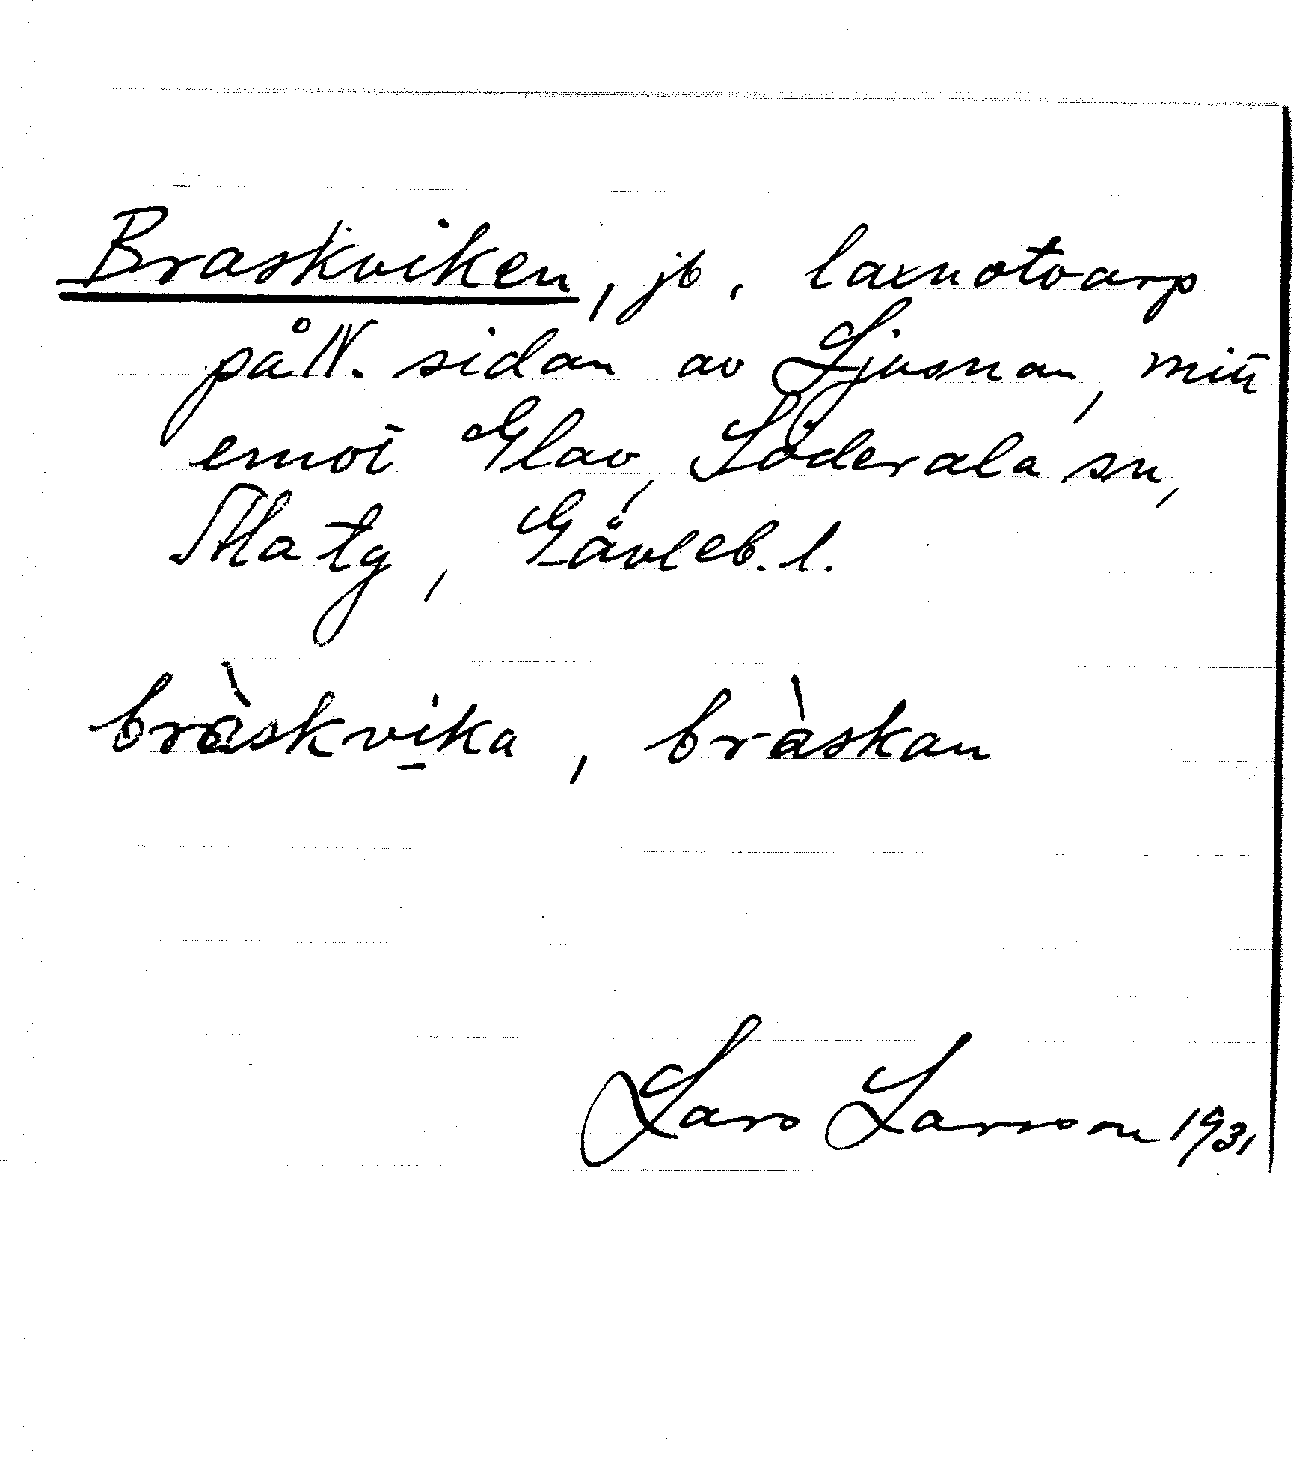 Braskviken, jb, laxnotvarp
på N. sidan av Ljusnan, mitt
emot Glav, Söderala sn,
Ala tg, Gävleb. l.
bràskvika, bràskan
Lars Larsson 1931